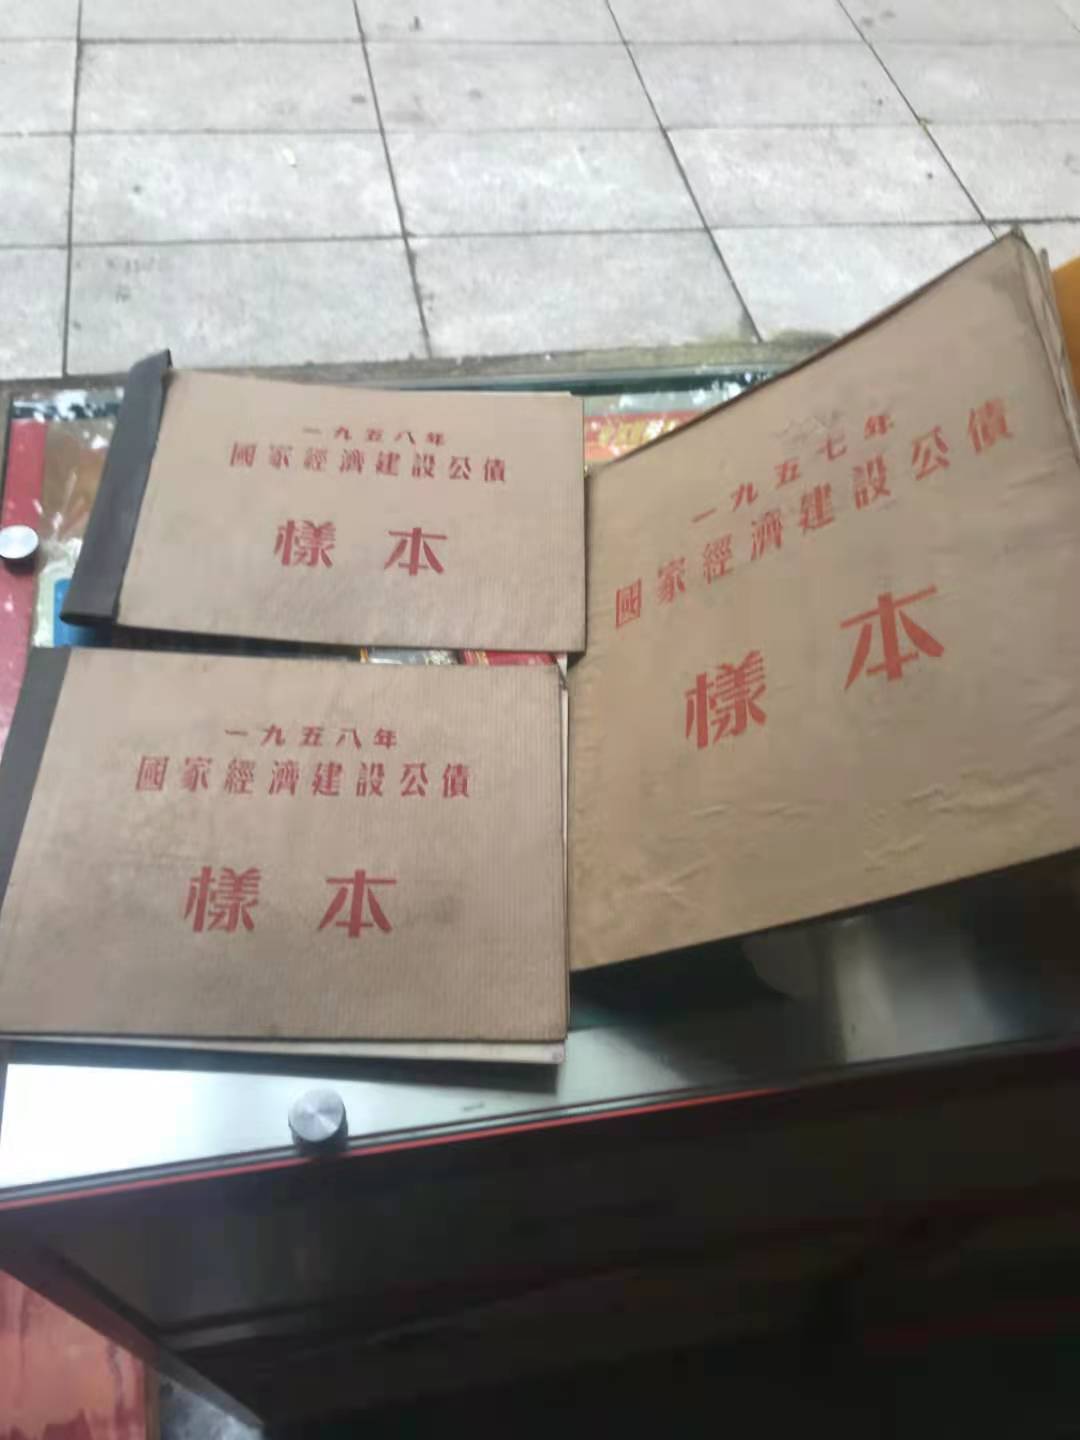 一九五八年
國家經濟建設公債
樣本
一九五七年
國家經濟建設公債
樣本
一九五八年
國家經濟建設公債
樣本